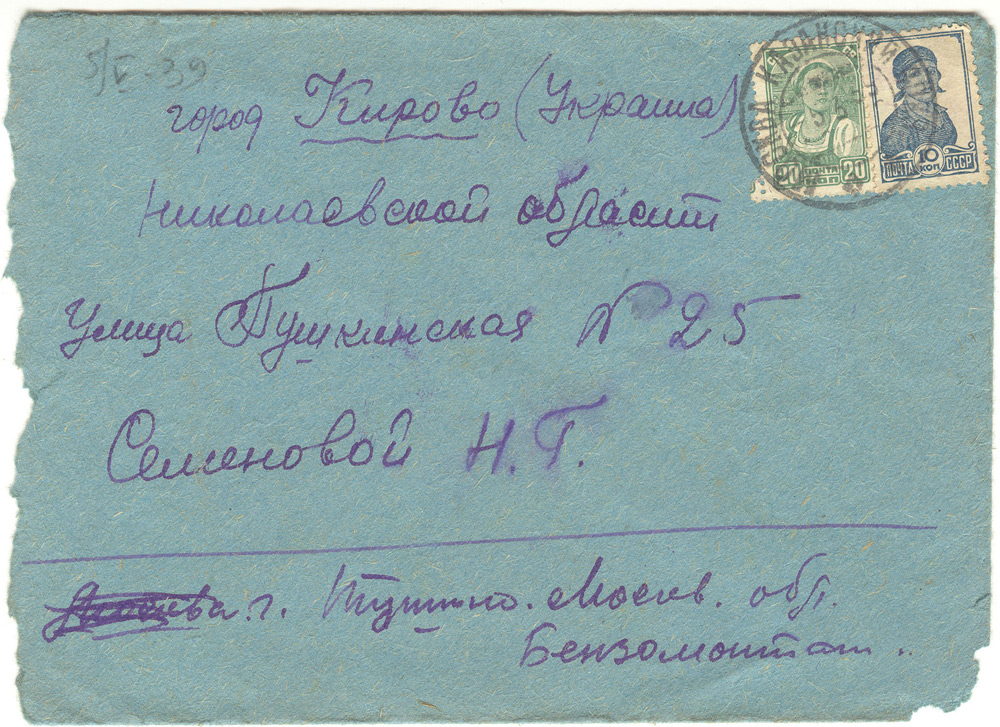 5/V-39
город Кирово (Украина)
Николаевской области
Улица Пушкинская N 25
Семеновой Н.Г.
г. Тушино. Москв. обл.
Бензомонтаж..
20 ПОЧТА 20
10 КОП
ПОЧТА СССР